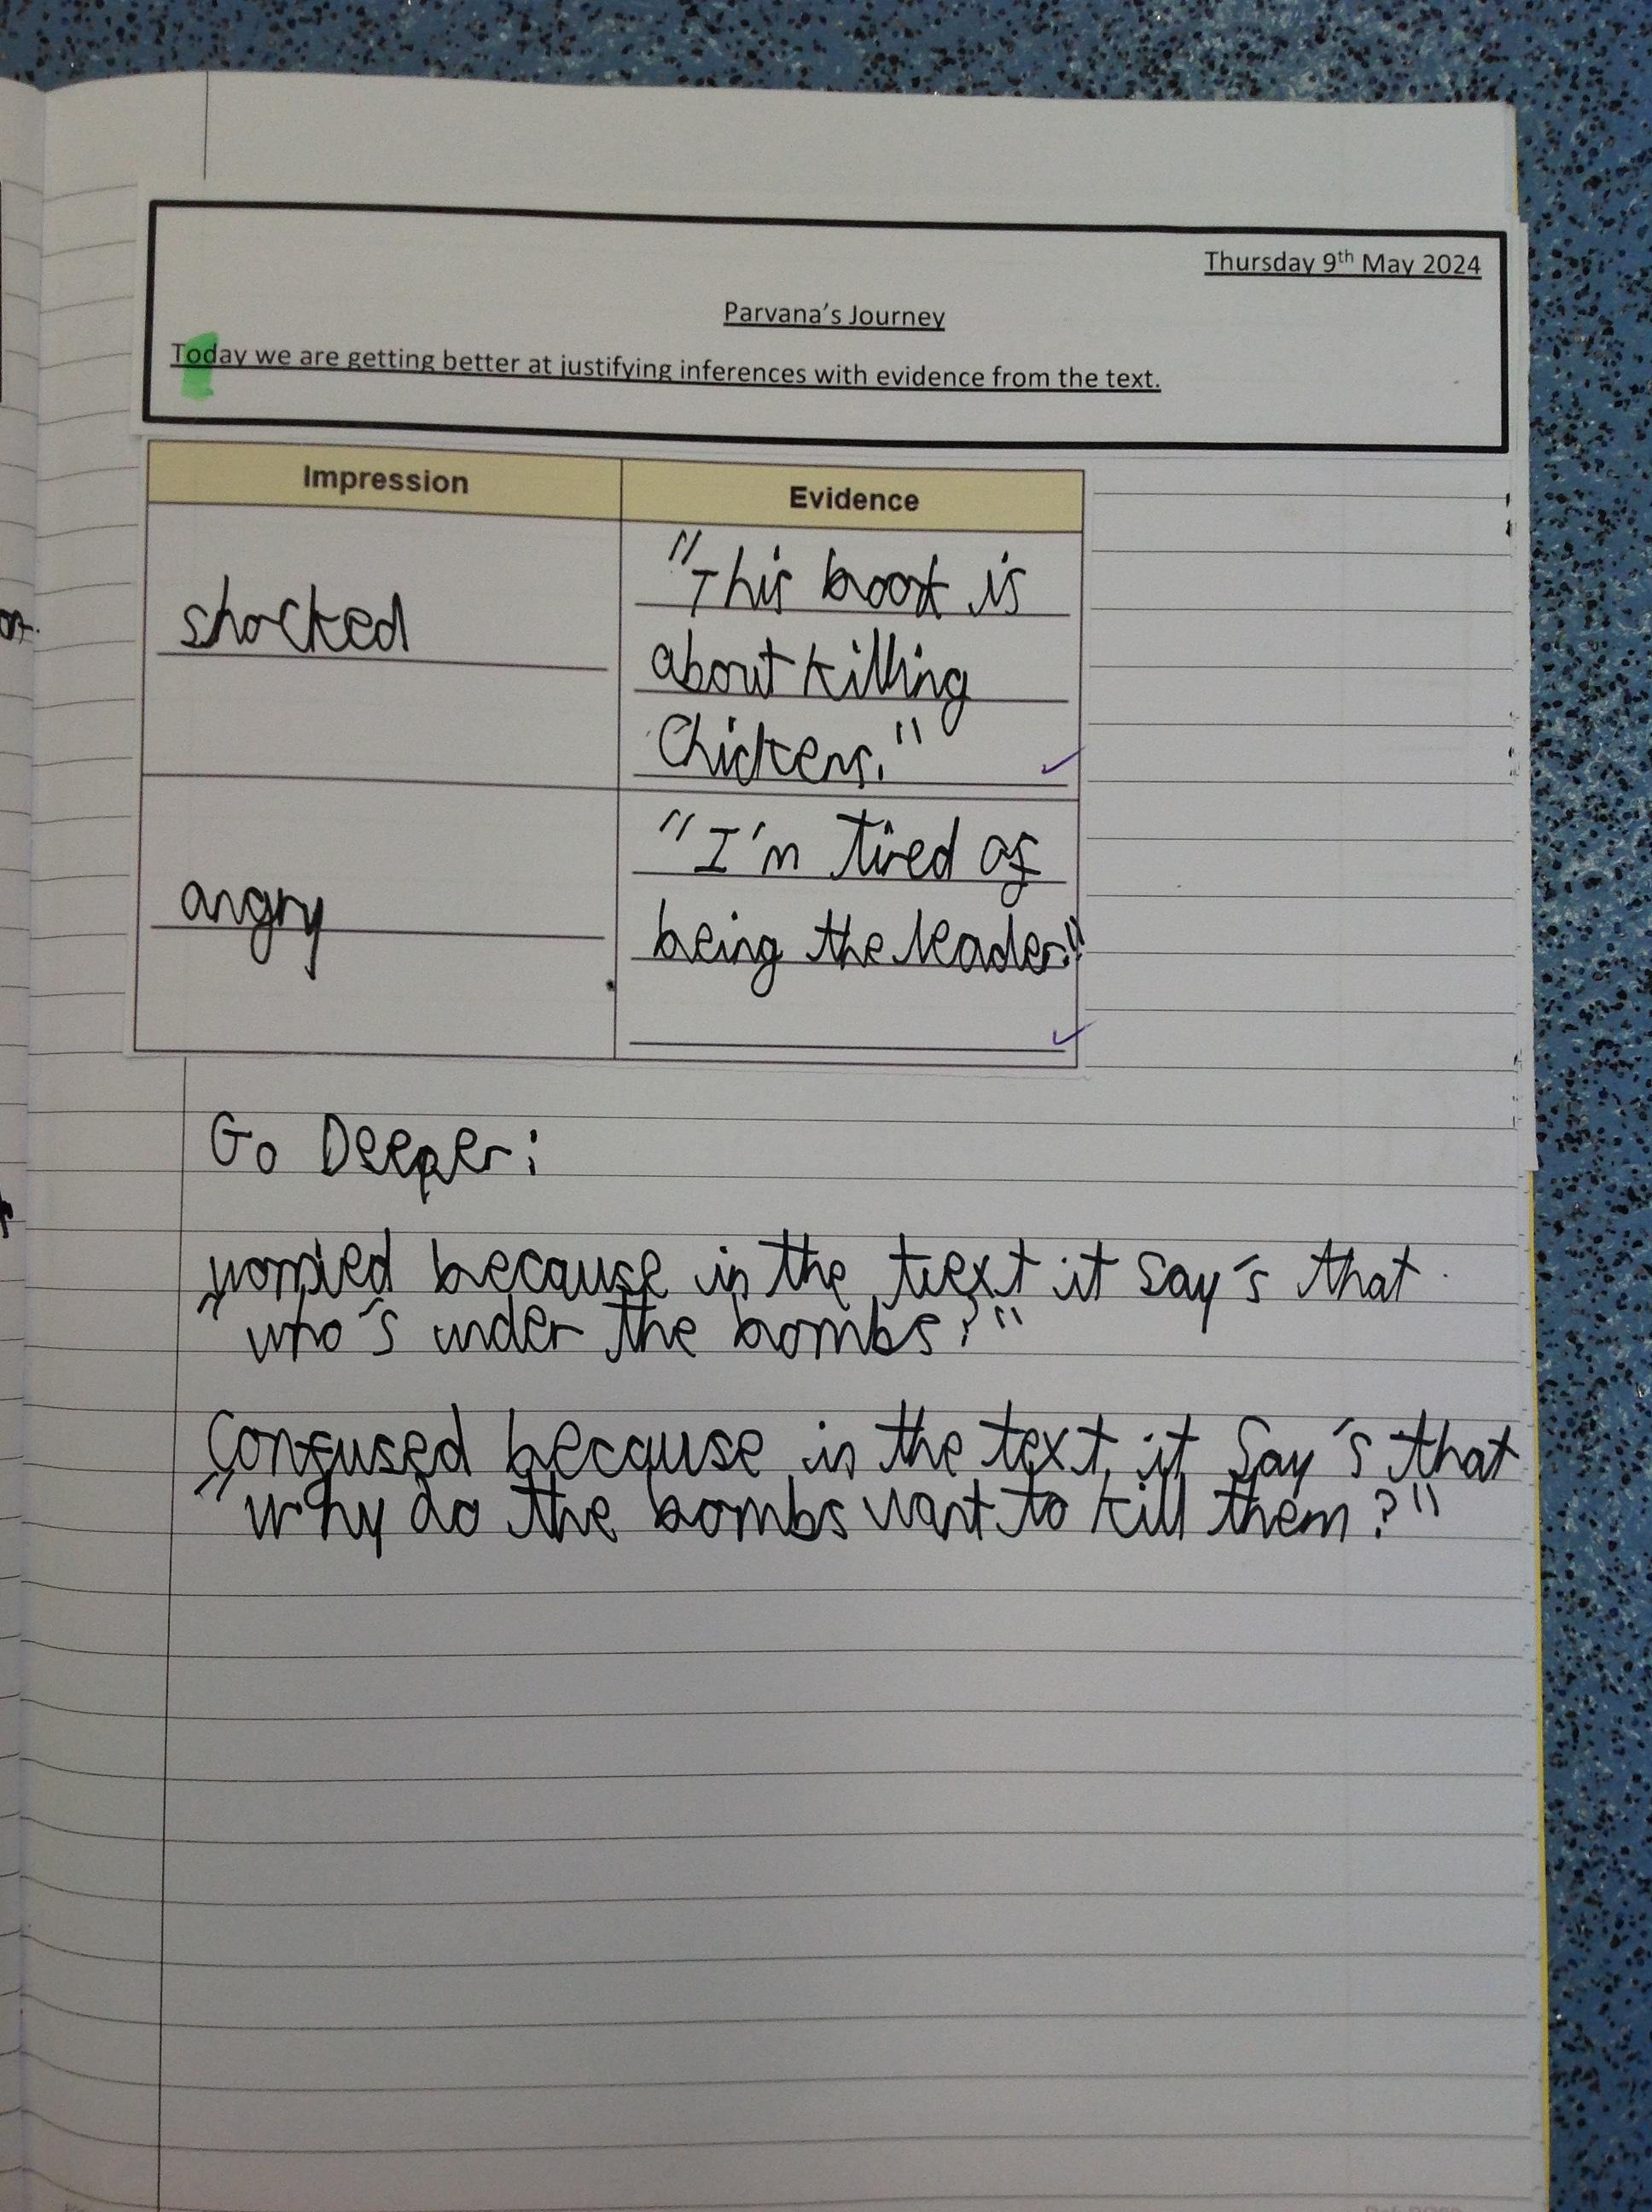 Thursday 9th May 2024
Parvana's Journey
Today we are getting better at justifying inferences with evidence from the text.
Impression
Evidence
shocked
"This book is
about killing
Chickens."
angry
"I'm tired of
being the leader."
Go Deeper:
worried because in the text it say's that
"who's under the bombs?"
Confused because in the text, it say's that
"why do the bombs want to kill them?"